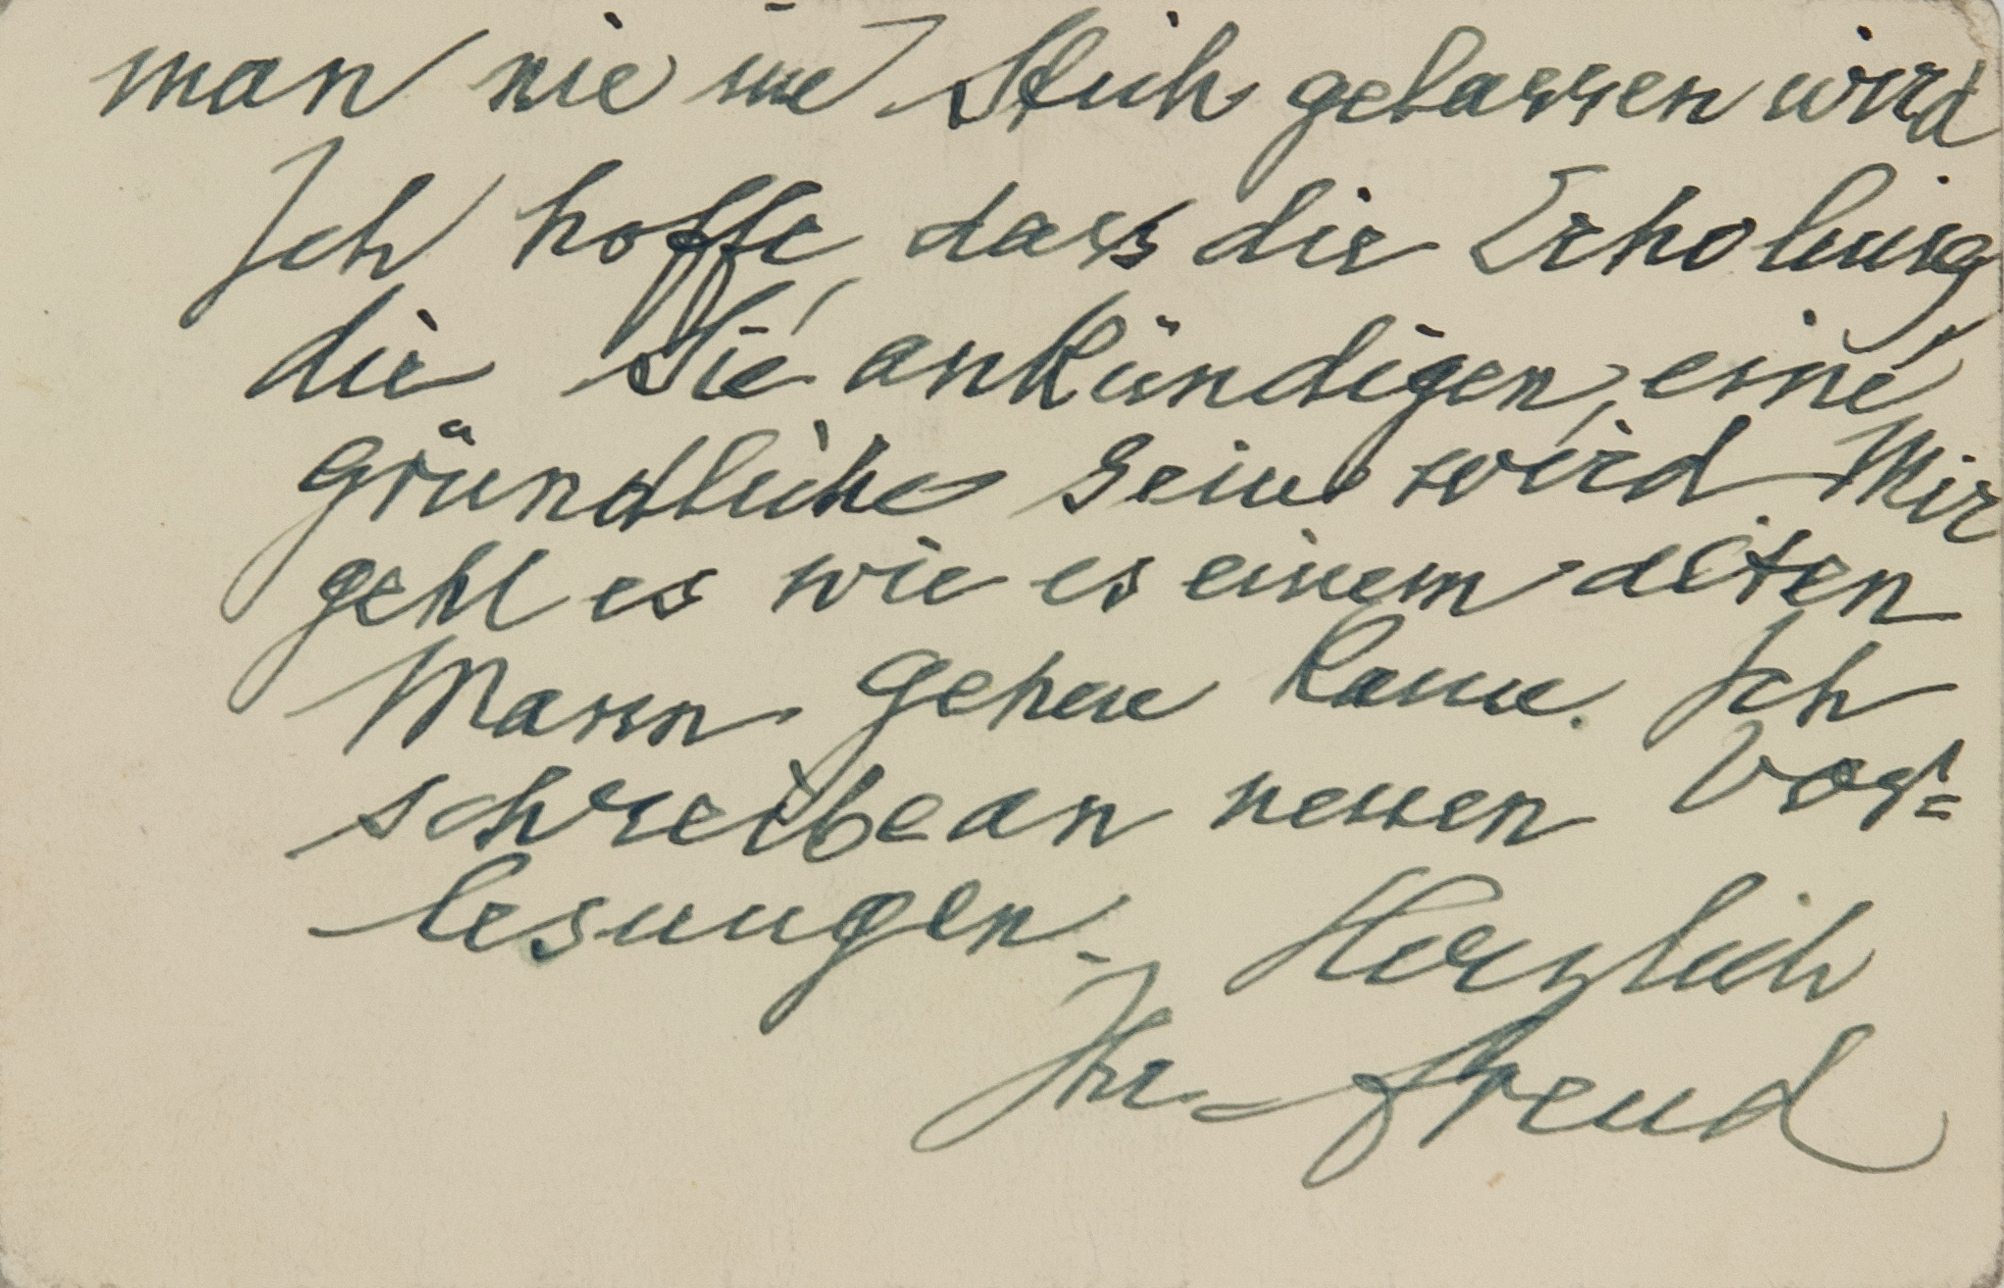 man nie im Stich gelassen wird
Ich hoffe, dass die Erholung,
die Sie ankündigen, eine
gründliche sein wird. Mir
geht es wie es einem alten
Mann gehen kann. Ich
schreibe an neuen Vor=
lesungen.
Herzlich
Ihr Freud